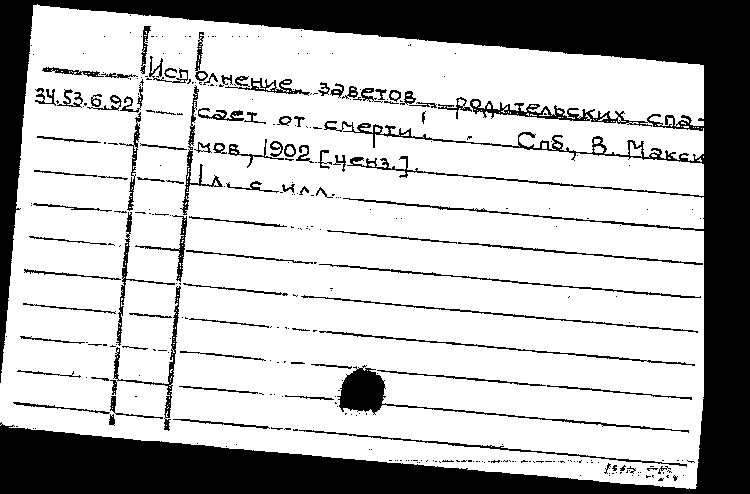 Исполнение заветов родительских спа-
34.53.6.92 сает от смерти! . Спб., В. Макси
мов, 1902 [ценз.].
1 л. с илл.